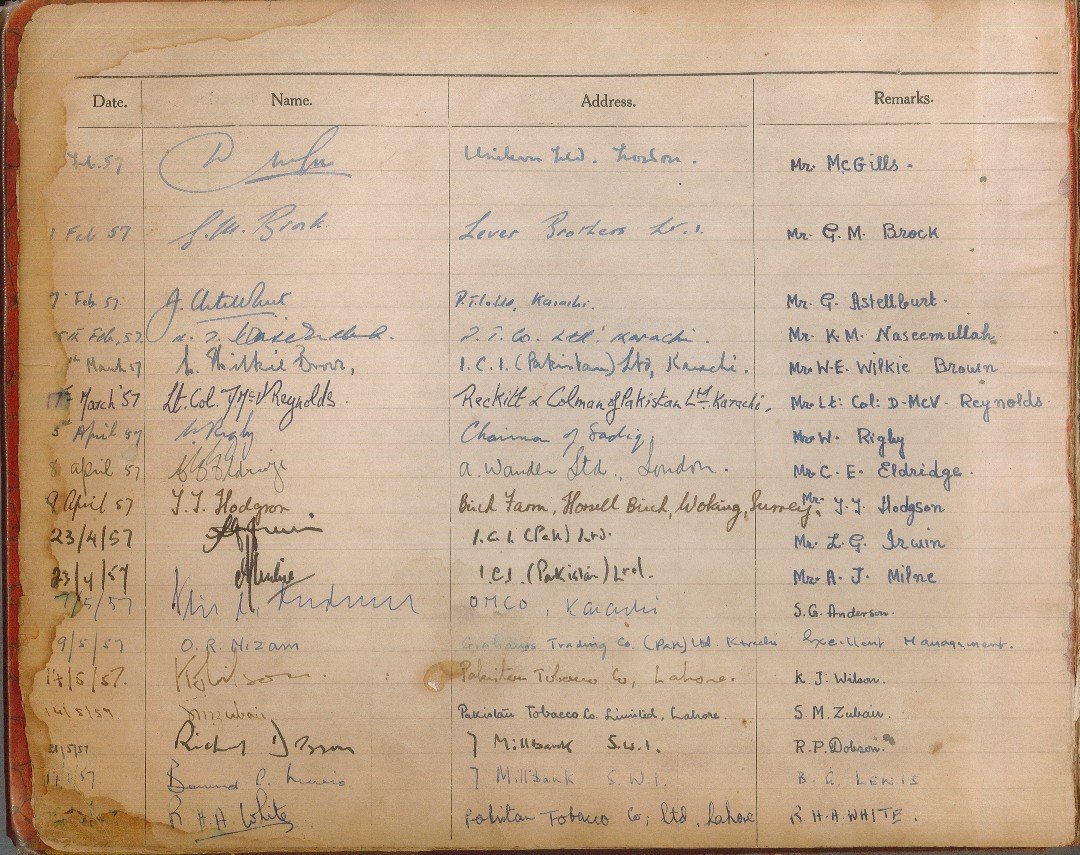 Date. Name. Address. Remarks.
Feb. 57 London. Mr. McGills.
1 Feb 57 G. M. Brock Lever Brothers Mr. G. M. Brock
Feb 57 Karachi. Mr. G. Astellburt.
Feb, 57 Ltd. Karachi. Mr. K. M. Naseemullah
March 57 Wilkie Brown, I.C.I. (Pakistan) Ltd, Karachi. Mr. W. E. Wilkie Brown
17th March '57 Lt. Col. McV Reynolds. Reckitt & Colman of Pakistan Ltd. Karachi. Mr. Lt: Col: D. McV. Reynolds.
April 57 W. Rigby Chairman of Sadiq Mr. W. Rigby
8 April 57 C E Eldridge A. Wander Ltd., London. Mr. C. E. Eldridge.
8 April 57 J. J. Hodgson Birch Farm, Horsell Birch, Woking, Surrey. Mr. J. J. Hodgson
23/4/57 I.C.I. (Pak) Ltd. Mr. L. G. Irwin
23/4/57 I.C.I. (Pakistan) Ltd. Mr. A. J. Milne
/5/57 OMCO, Karachi S. G. Anderson.
9/5/57 O. R. Nizam Trading Co. (Pak) Ltd. Karachi Excellent Management.
14/5/57. Wilson. Pakistan Tobacco Co, Lahore. K. J. Wilson.
14/5/57. Zubair Pakistan Tobacco Co. Limited, Lahore. S. M. Zubair.
21/5/57 Richard Dobson 7 Millbank S.W.1. R. P. Dobson.
57. Lewis 7 Millbank S.W.1. LEWIS
R H A White Pakistan Tobacco Co; Ltd, Lahore R H A WHITE.